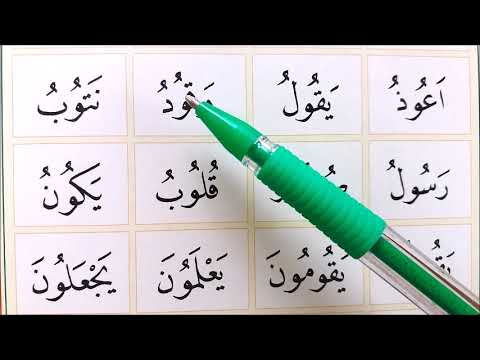 اَعُوذُ يَقُولُ نَتُوبُ
رَسُولُ قُلُوبُ يَكُونُ
يَقُومُونَ يَعْلَمُونَ يَجْعَلُونَ